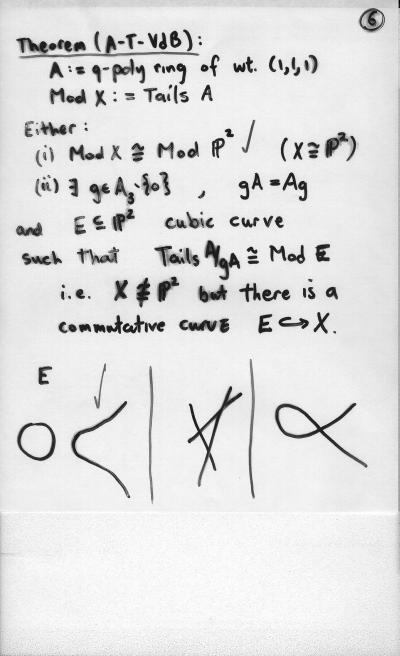 6
Theorem (A-T-VdB):
A := q-poly ring of wt. (1,1,1)
Mod X := Tails A
Either:
(i) Mod X ≅ Mod ℙ² ✓ (X ≅ ℙ²)
(ii) ∃ g∈A₃∖{0} , gA = Ag
and E ⊆ ℙ² cubic curve
such that Tails A/gA ≅ Mod E
i.e. X ≇ ℙ² but there is a
commutative curve E ↪ X.
E